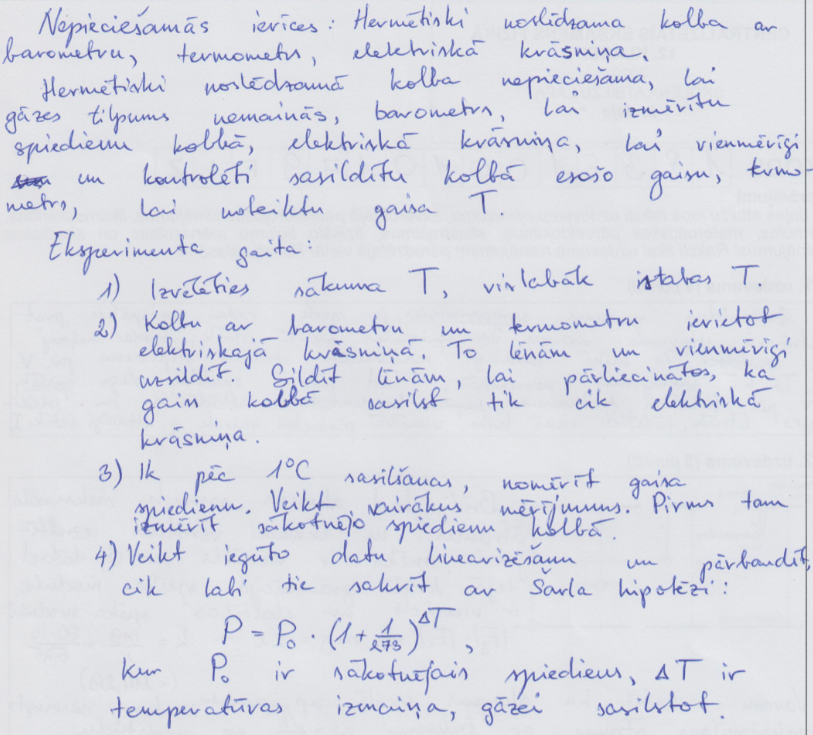 Nepieciešamās ierīces: Hermētiski noslēdzama kolba ar
barometru, termometrs, elektriskā krāsniņa.
Hermētiski noslēdzamā kolba nepieciešama, lai
gāzes tilpums nemainās, barometrs, lai izmērītu
spiedienu kolbā, elektriskā krāsniņa, lai vienmērīgi
un kontrolēti sasildītu kolbā esošo gaisu, termo-
metrs, lai noteiktu gaisa T
Eksperimenta gaita:
1) Izvēlēties sākuma T, vislabāk istabas T.
2) Kolbu ar barometru un termometru ievietot
elektriskajā krāsniņā. To lēnām un vienmērīgi
uzsildīt. Sildīt lēnām, lai pārliecinātos, ka
gaiss kolbā sasilst tik cik elektriskā
krāsniņa.
3) Ik pēc 1°C sasilšanas, nomērīt gaisa
spiedienu. Veikt vairākus mērījumus. Pirms tam
izmērīt sākotnējo spiedienu kolbā.
4) Veikt iegūto datu linearizēšanu un pārbaudīt,
cik labi tie sakrīt ar Šarla hipotēzi:
P = P₀ · (1 + 1/273)^ΔT,
kur P₀ ir sākotnējais spiediens, ΔT ir
temperatūras izmaiņa, gāzei sasilstot.